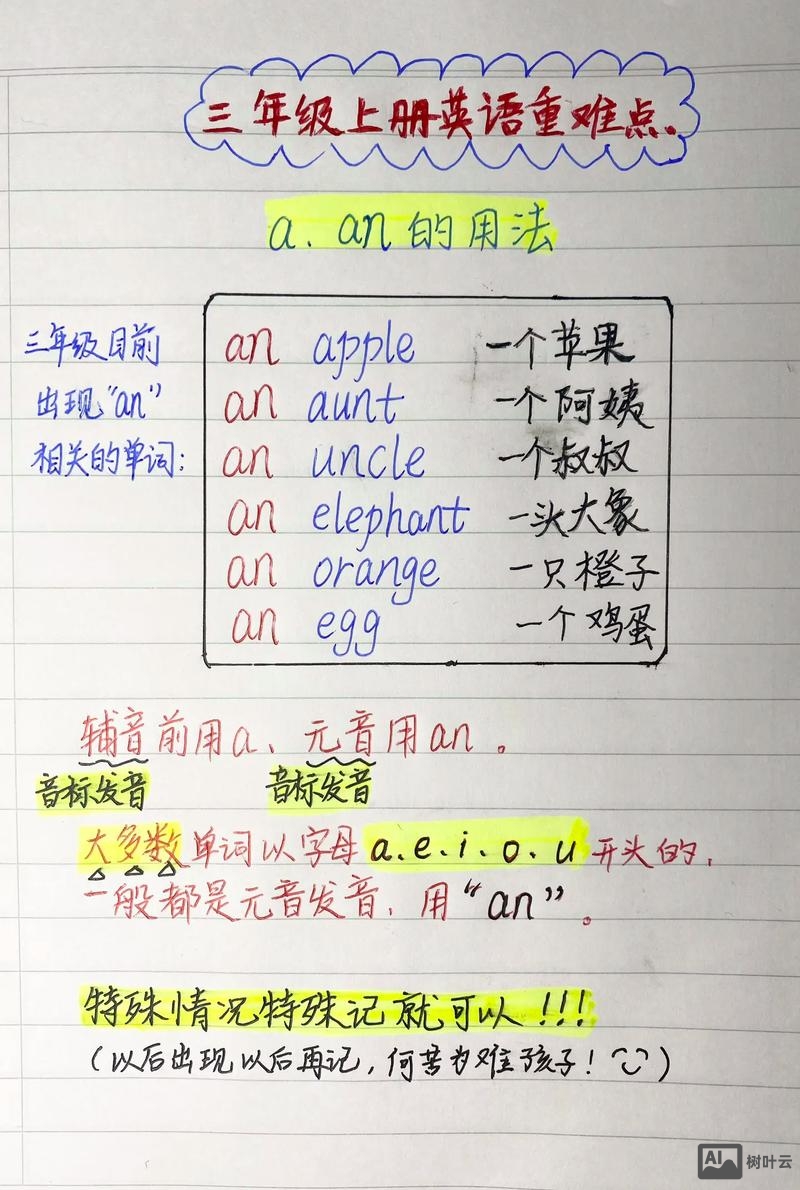 三年级上册英语重难点。
a、an的用法
三年级目前
出现"an"
相关的单词:
an apple 一个苹果
an aunt 一个阿姨
an uncle 一个叔叔
an elephant 一头大象
an orange 一只橙子
an egg 一个鸡蛋
辅音前用a、元音用an。
音标发音 音标发音
大多数单词以字母a.e.i.o.u开头的,
一般都是元音发音,用"an"。
特殊情况特殊记就可以!!!
(以后出现以后再记,何苦为难孩子!)
AI 树叶云